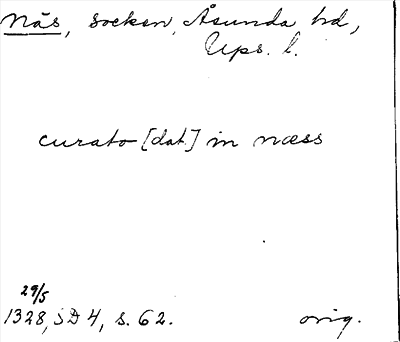 Näs, socken, Åsunda hd,
Ups. l.
curato [dat] in næss
29/5
1328, SD 4, s. 62. orig.